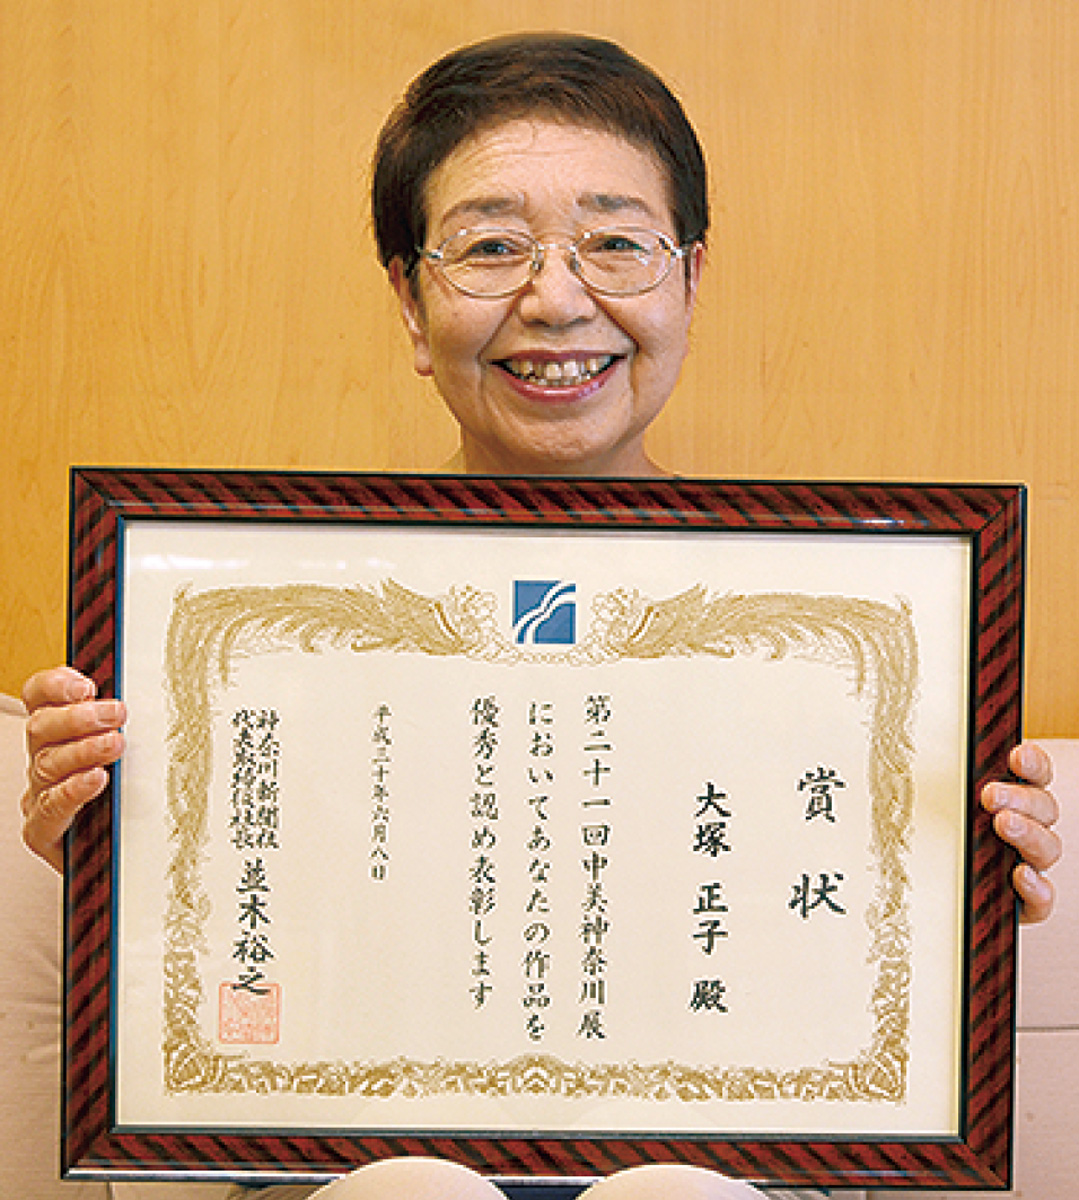 賞状
大塚 正子 殿
第二十一回中美神奈川展
においてあなたの作品を
優秀と認め表彰します
平成三十年六月八日
神奈川新聞社
代表取締役社長
並木裕之